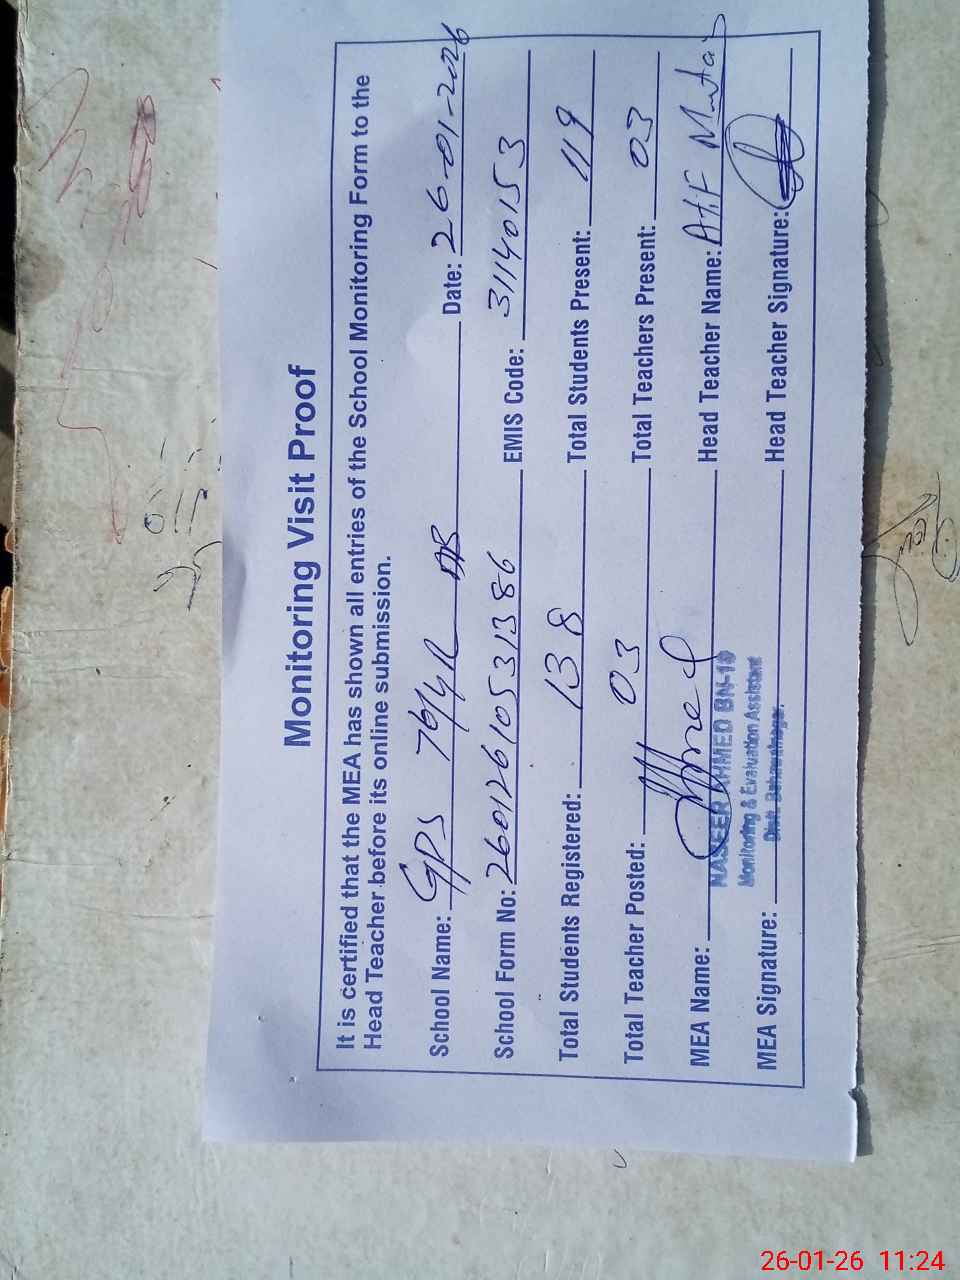 Monitoring Visit Proof
It is certified that the MEA has shown all entries of the School Monitoring Form to the
Head Teacher before its online submission.
School Name: GPS 76/4R Date: 26-01-2026
School Form No: 26012610531386 EMIS Code: 31140153
Total Students Registered: 138 Total Students Present: 119
Total Teacher Posted: 03 Total Teachers Present: 03
MEA Name: Head Teacher Name: Atif Mumtaz
NASEER AHMED BN-10
Monitoring & Evaluation Assistant
Distt. Bahawalnagar.
MEA Signature: Head Teacher Signature:
26-01-26 11:24